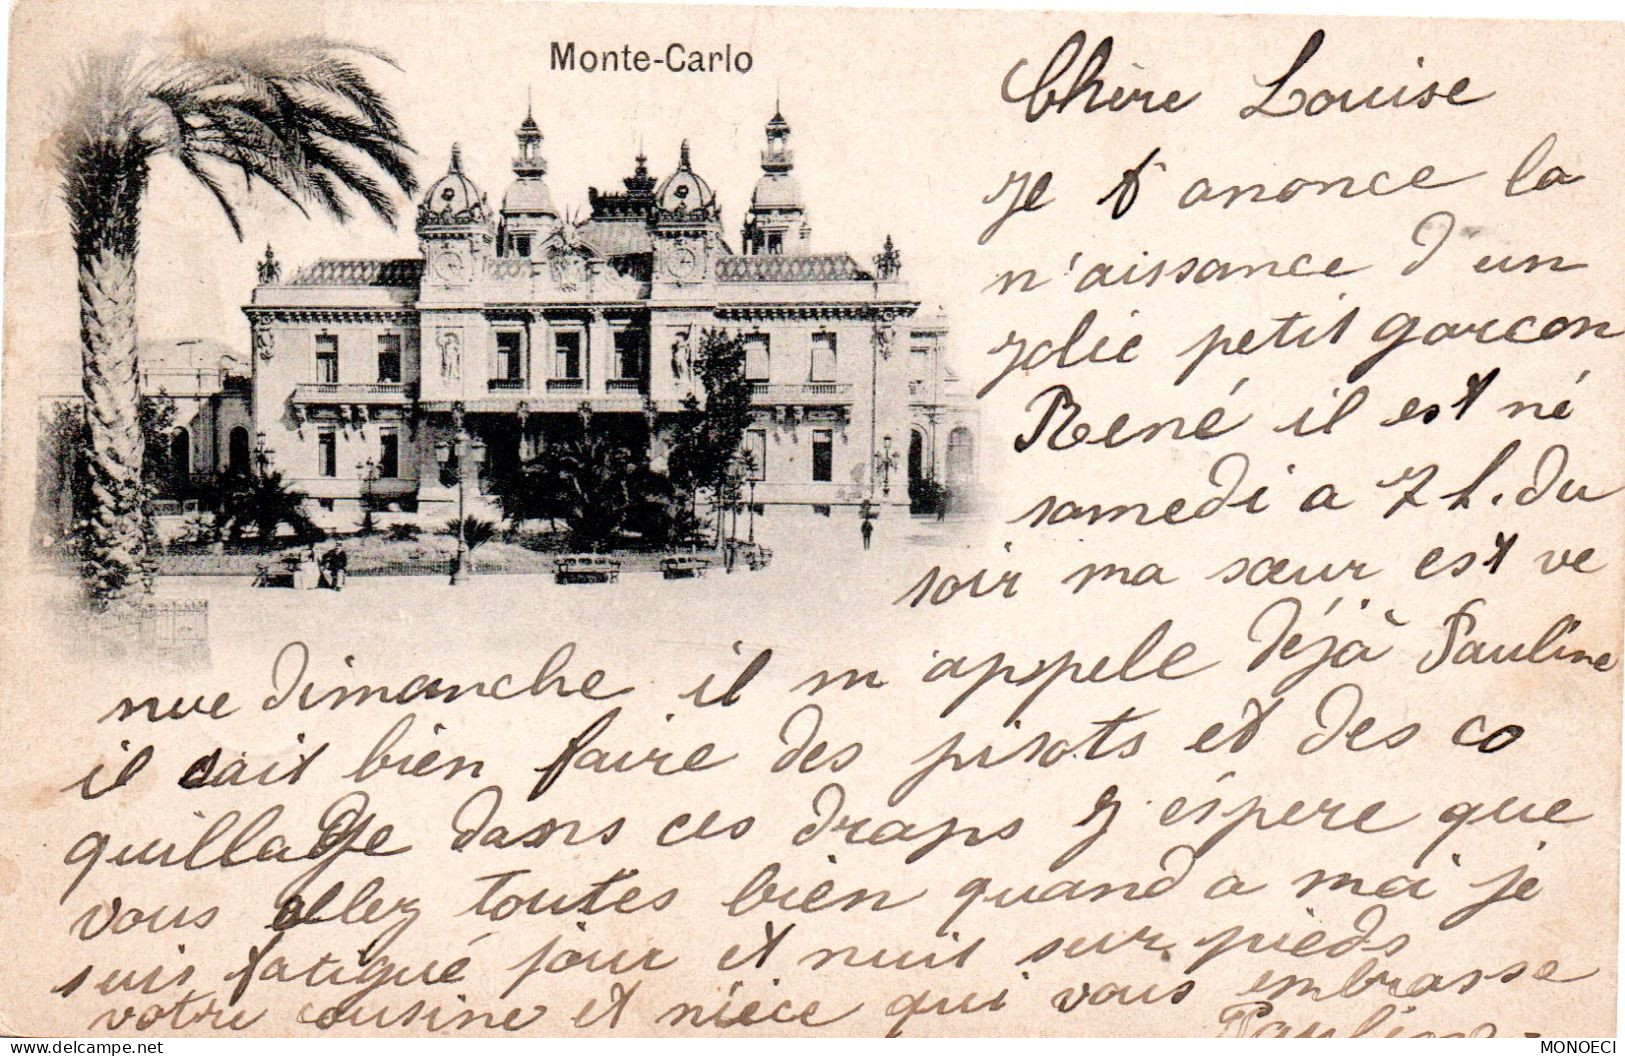 Monte-Carlo
Chère Louise
Je t'anonce la
n'aissance d'un
Jolie petit garcon
René il est né
samedi a 7 h. du
soir ma sœur est ve
nue dimanche il m'appele déjà Pauline
il sait bien faire des pisots et des co
quillage dans ces draps J'éspere que
vous allez toutes bien quand a moi je
suis fatigué jour et nuit sur pieds
votre cousine et nièce qui vous embrasse
Pauline
delcampe.net
MONOECI